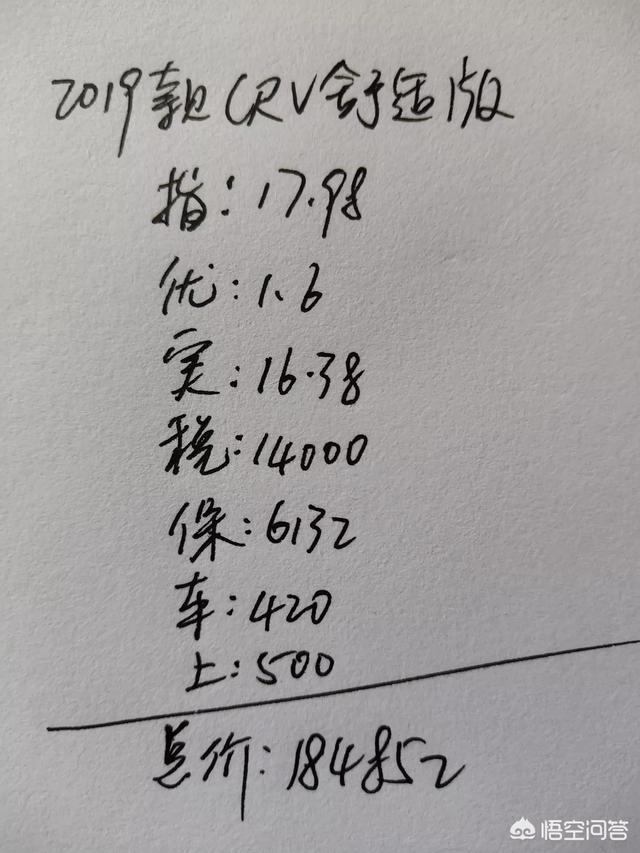 2019款CRV舒适版
指:17.98
优:1.6
实:16.38
税:14000
保:6132
车:420
上:500
总价:184852
悟空问答